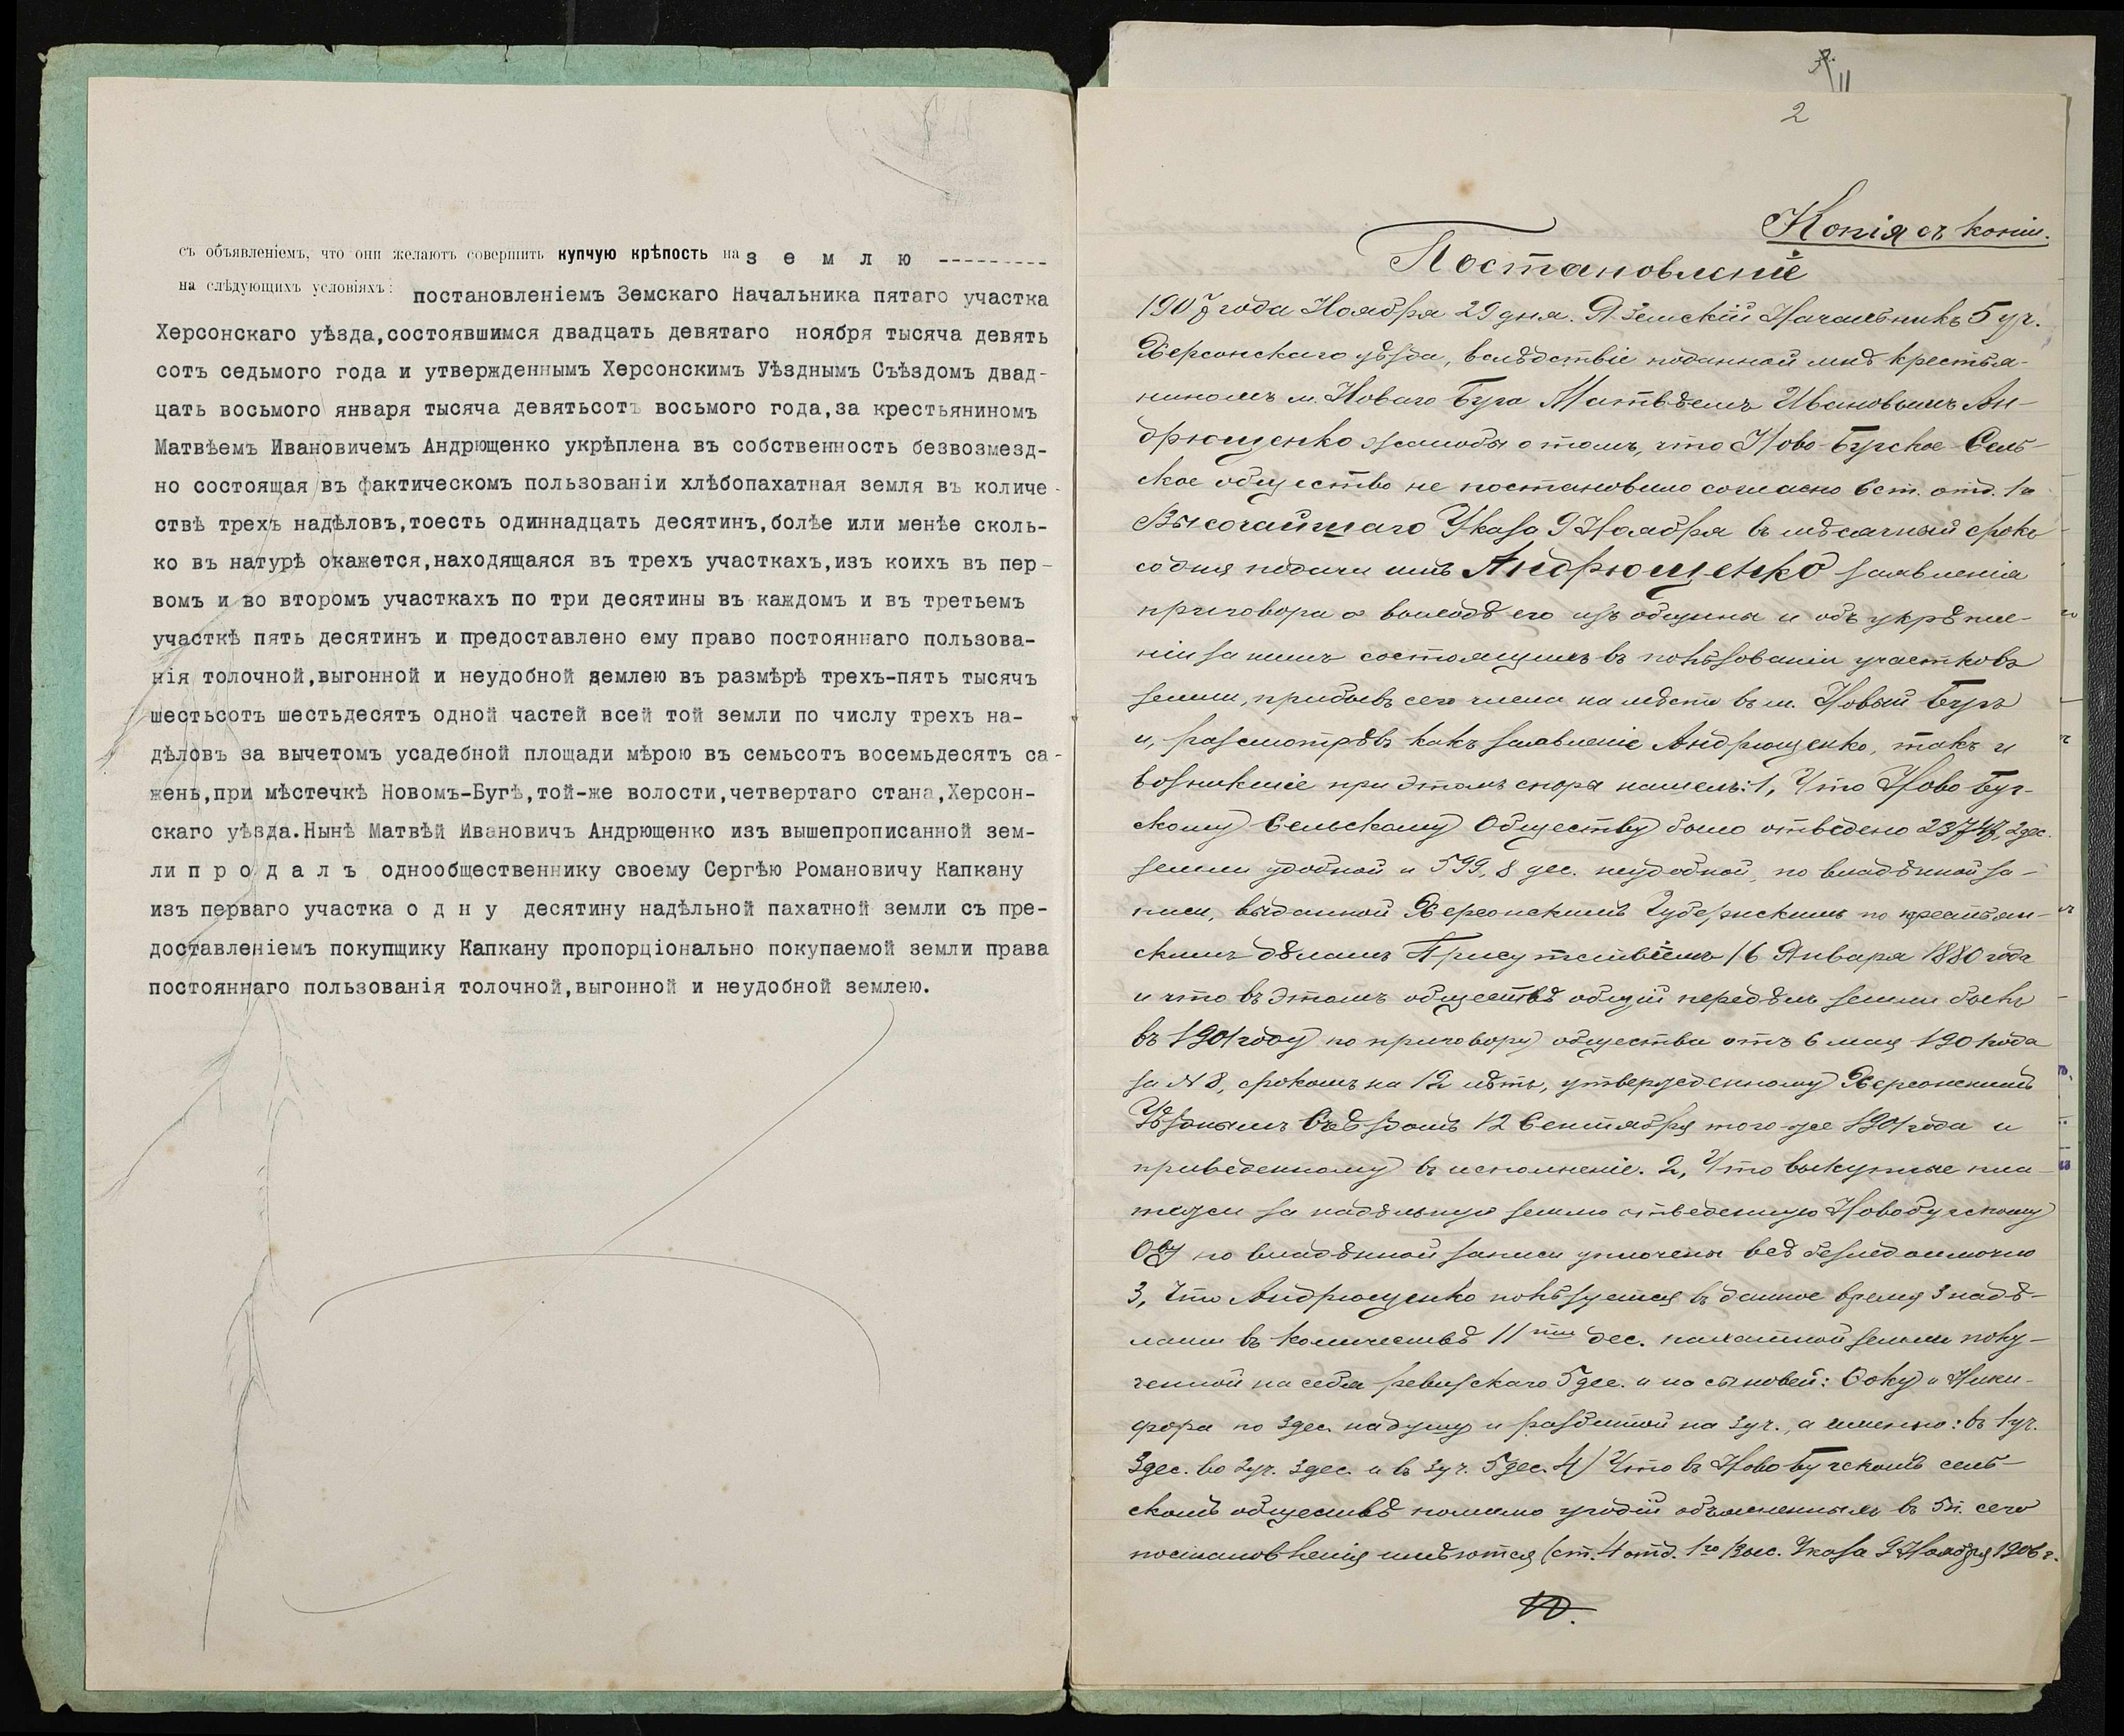 съ объявленіемъ, что они желаютъ совершить купчую крѣпость на з е м л ю ---------
на слѣдующихъ условіяхъ: постановленіемъ Земскаго Начальника пятаго участка
Херсонскаго уѣзда,состоявшимся двадцать девятаго ноября тысяча девять
сотъ седьмого года и утвержденнымъ Херсонскимъ Уѣзднымъ Съѣздомъ двад-
цать восьмого января тысяча девятьсотъ восьмого года,за крестьяниномъ
Матвѣемъ Ивановичемъ Андрющенко укрѣплена въ собственность безвозмезд-
но состоящая въ фактическомъ пользованіи хлѣбопахатная земля въ количе-
ствѣ трехъ надѣловъ,тоесть одиннадцать десятинъ,болѣе или менѣе сколь-
ко въ натурѣ окажется,находящаяся въ трехъ участкахъ,изъ коихъ въ пер-
вомъ и во второмъ участкахъ по три десятины въ каждомъ и въ третьемъ
участкѣ пять десятинъ и предоставлено ему право постояннаго пользова-
нія толочной,выгонной и неудобной землею въ размѣрѣ трехъ-пять тысячъ
шестьсотъ шестьдесятъ одной частей всей той земли по числу трехъ на-
дѣловъ за вычетомъ усадебной площади мѣрою въ семьсотъ восемьдесятъ са-
жень,при мѣстечкѣ Новомъ-Бугѣ,той-же волости,четвертаго стана,Херсон-
скаго уѣзда.Нынѣ Матвѣй Ивановичъ Андрющенко изъ вышепрописанной зем-
ли п р о д а л ъ однообщественнику своему Сергѣю Романовичу Капкану
изъ перваго участка о д н у десятину надѣльной пахатной земли съ пре-
доставленіемъ покупщику Капкану пропорціонально покупаемой земли права
постояннаго пользованія толочной,выгонной и неудобной землею.
2
Копія съ копіи.
Постановленіе
1907 года Ноября 29 дня. Я Земскій Начальникъ 5 уч.
Херсонскаго уѣзда, вслѣдствіе поданной мнѣ крестья-
ниномъ м. Новаго Буга Матвѣемъ Ивановымъ Ан-
дрющенко жалобы о томъ, что Ново-Бугское Сель-
ское общество не постановило согласно 6 ст. отд. 1го
Высочайшаго Указа 9 Ноября въ мѣсячный срокъ
со дня подачи имъ Андрющенко заявленія
приговора о выходѣ его изъ общины и объ укрѣпле-
ніи за нимъ состоящихъ въ пользованіи участковъ
земли, прибывъ сего числа на мѣсто въ м. Новый Бугъ
и, разсмотрѣвъ какъ заявленіе Андрющенко, такъ и
возникшіе при этомъ споры нашелъ: 1, Что Ново Буг-
скому Сельскому Обществу было отведено 23747,2 дес.
земли удобной и 599,8 дес. неудобной, по владѣнной за-
писи, выданной Херсонскимъ Губернскимъ по крестьян-
скимъ дѣламъ Присутствіемъ 16 Января 1880 года
и что въ этомъ обществѣ общій передѣлъ земли былъ
въ 1901 году по приговору общества отъ 6 мая 1901 года
за № 8, срокомъ на 12 лѣтъ, утвержденному Херсонскимъ
Уѣзднымъ Съѣздомъ 12 Сентября того-же 1901 года и
приведенному въ исполненіе. 2, Что выкупные пла-
тежи за надѣльную землю отведенную Новобугскому
О-ву по владѣнной записи уплочены всѣ безнедоимочно
3, Что Андрющенко пользуется въ данное время 3 надѣ-
лами въ количествѣ 11ти дес. пахатной земли полу-
ченной на себя ревизскаго 5 дес. и на сыновей: Фоку и Ники-
фора по 3 дес. на душу и разбитой на 3 уч., а именно: въ 1 уч.
3 дес. во 2 уч. 3 дес. и въ 3 уч. 5 дес. 4) Что въ Ново Бугскомъ сель-
скомъ обществѣ помимо угодій объясненныхъ въ 5 п. сего
постановленія имѣются (ст. 4 отд. 1го Выс. Указа 9 Ноября 1906 г.